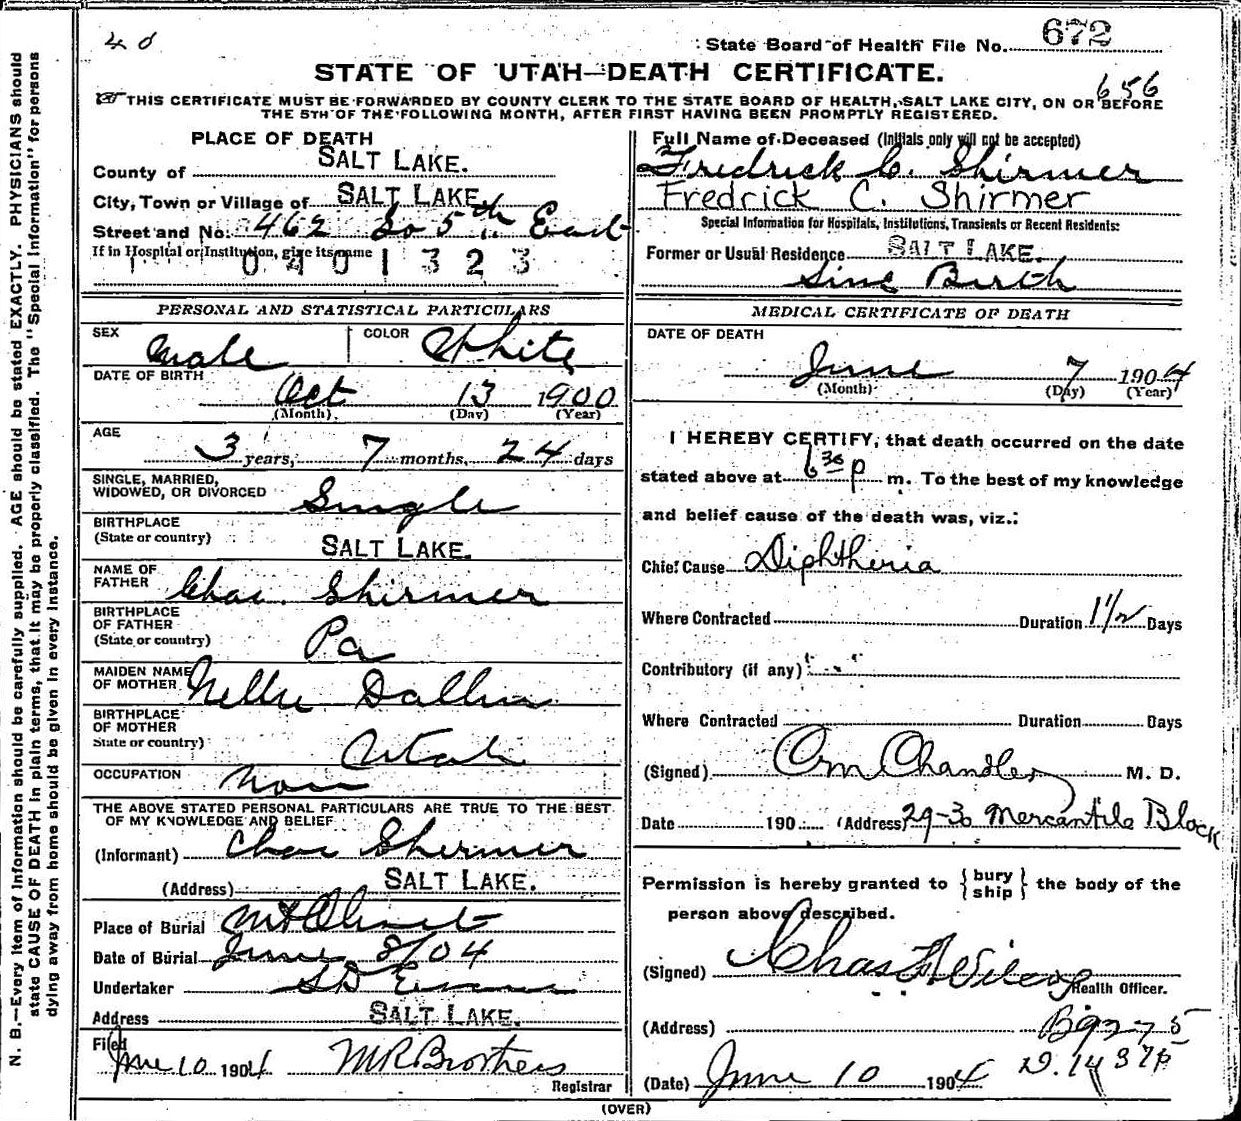 40
State Board of Health File No. 672
STATE OF UTAH—DEATH CERTIFICATE.
656
THIS CERTIFICATE MUST BE FORWARDED BY COUNTY CLERK TO THE STATE BOARD OF HEALTH, SALT LAKE CITY, ON OR BEFORE
THE 5TH OF THE FOLLOWING MONTH, AFTER FIRST HAVING BEEN PROMPTLY REGISTERED.
PLACE OF DEATH
County of SALT LAKE.
City, Town or Village of SALT LAKE.
Street and No. 462 So 5th East
If in Hospital or Institution, give its name
0401323
PERSONAL AND STATISTICAL PARTICULARS
SEX Male COLOR White
DATE OF BIRTH
Oct 13 1900
(Month) (Day) (Year)
AGE
3 years, 7 months, 24 days
SINGLE, MARRIED,
WIDOWED, OR DIVORCED Single
BIRTHPLACE
(State or country) SALT LAKE.
NAME OF
FATHER Chas. Shirmer
BIRTHPLACE
OF FATHER
(State or country) Pa
MAIDEN NAME
OF MOTHER Nellie Dallin
BIRTHPLACE
OF MOTHER
State or country) Utah
OCCUPATION None
THE ABOVE STATED PERSONAL PARTICULARS ARE TRUE TO THE BEST
OF MY KNOWLEDGE AND BELIEF
(Informant) Chas Shirmer
(Address) SALT LAKE.
Place of Burial Mt Olivet
Date of Burial June 8/04
Undertaker SD Evans
Address SALT LAKE.
Filed June 10 1904 MR Brothers
Registrar
Full Name of Deceased (Initials only will not be accepted)
Fredrick C. Shirmer
Fredrick C. Shirmer
Special Information for Hospitals, Institutions, Transients or Recent Residents:
Former or Usual Residence SALT LAKE.
Sinc Birth
MEDICAL CERTIFICATE OF DEATH
DATE OF DEATH
June 7 1904
(Month) (Day) (Year)
I HEREBY CERTIFY, that death occurred on the date
stated above at 6 30 p m. To the best of my knowledge
and belief cause of the death was, viz.:
Chief Cause Diphtheria
Where Contracted Duration 1 1/2 Days
Contributory (if any)
Where Contracted Duration Days
(Signed) Om Chandler M. D.
Date 190 (Address) 29-30 Mercantile Block
Permission is hereby granted to {bury
ship} the body of the
person above described.
(Signed) Chas F Wilcox
Health Officer.
(Address)
(Date) June 10 1904
(OVER)
N. B.—Every item of information should be carefully supplied. AGE should be stated EXACTLY. PHYSICIANS should
state CAUSE OF DEATH in plain terms, that it may be properly classified. The "Special Information" for persons
dying away from home should be given in every instance.